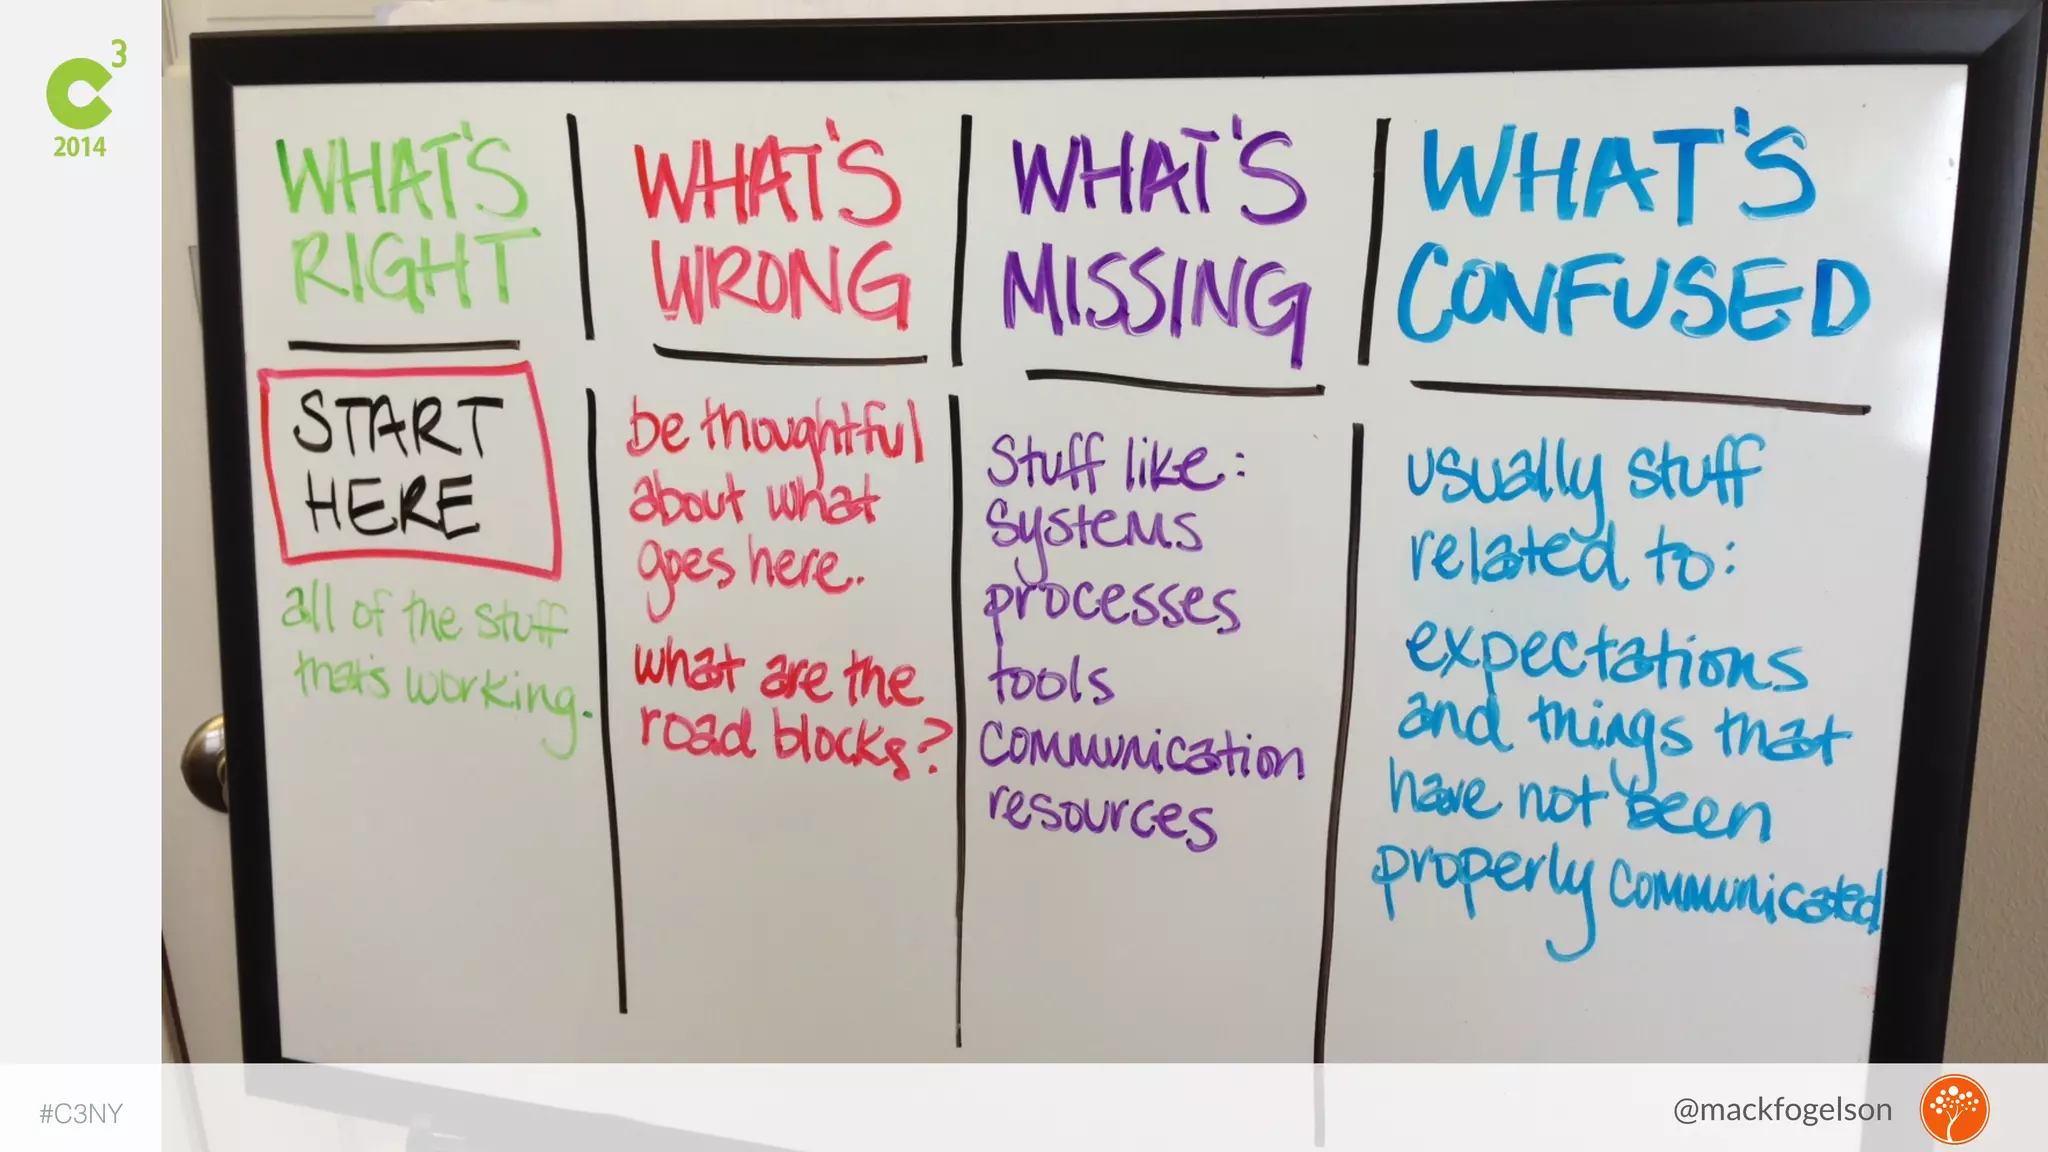 C3
2014
WHAT'S
RIGHT
START
HERE
all of the stuff
that's working.
WHAT'S
WRONG
be thoughtful
about what
goes here.
what are the
road blocks?
WHAT'S
MISSING
Stuff like:
Systems
processes
tools
communication
resources
WHAT'S
CONFUSED
usually stuff
related to:
expectations
and things that
have not been
properly communicated
#C3NY
@mackfogelson